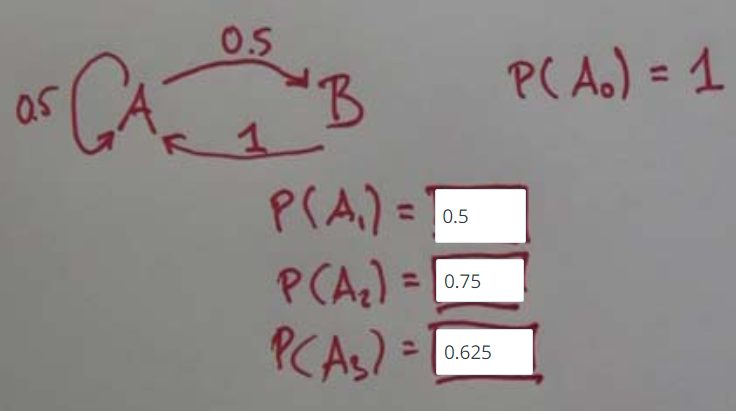 0.5
0.5 A B
1
P(A₀) = 1
P(A₁) = 0.5
P(A₂) = 0.75
P(A₃) = 0.625